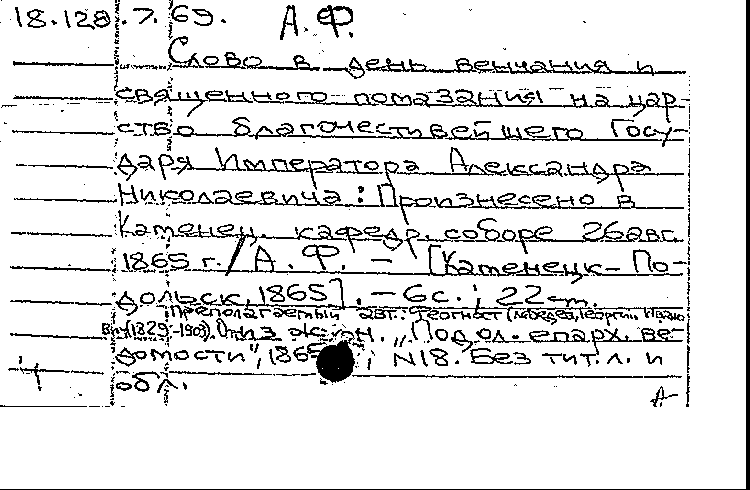 18.128.7.69. А.Ф.
Слово в день венчания и
священного помазания на цар-
ство благочестивейшего Госу-
даря Императора Александра
Николаевича: Произнесено в
Каменец. кафедр. соборе 26 авг.
1865 г. / А. Ф. – [Каменецк-По-
дольск, 1865]. – 6с.; 22 cm.
Преполагаемый авт.: Феогност (Лебедев, Георгий Ивано
вич (1829-1903). Отт. из журн. „Подол. епарх. ве-
домости", 186 ; N18. Без тит. л. и
обл.
4
А